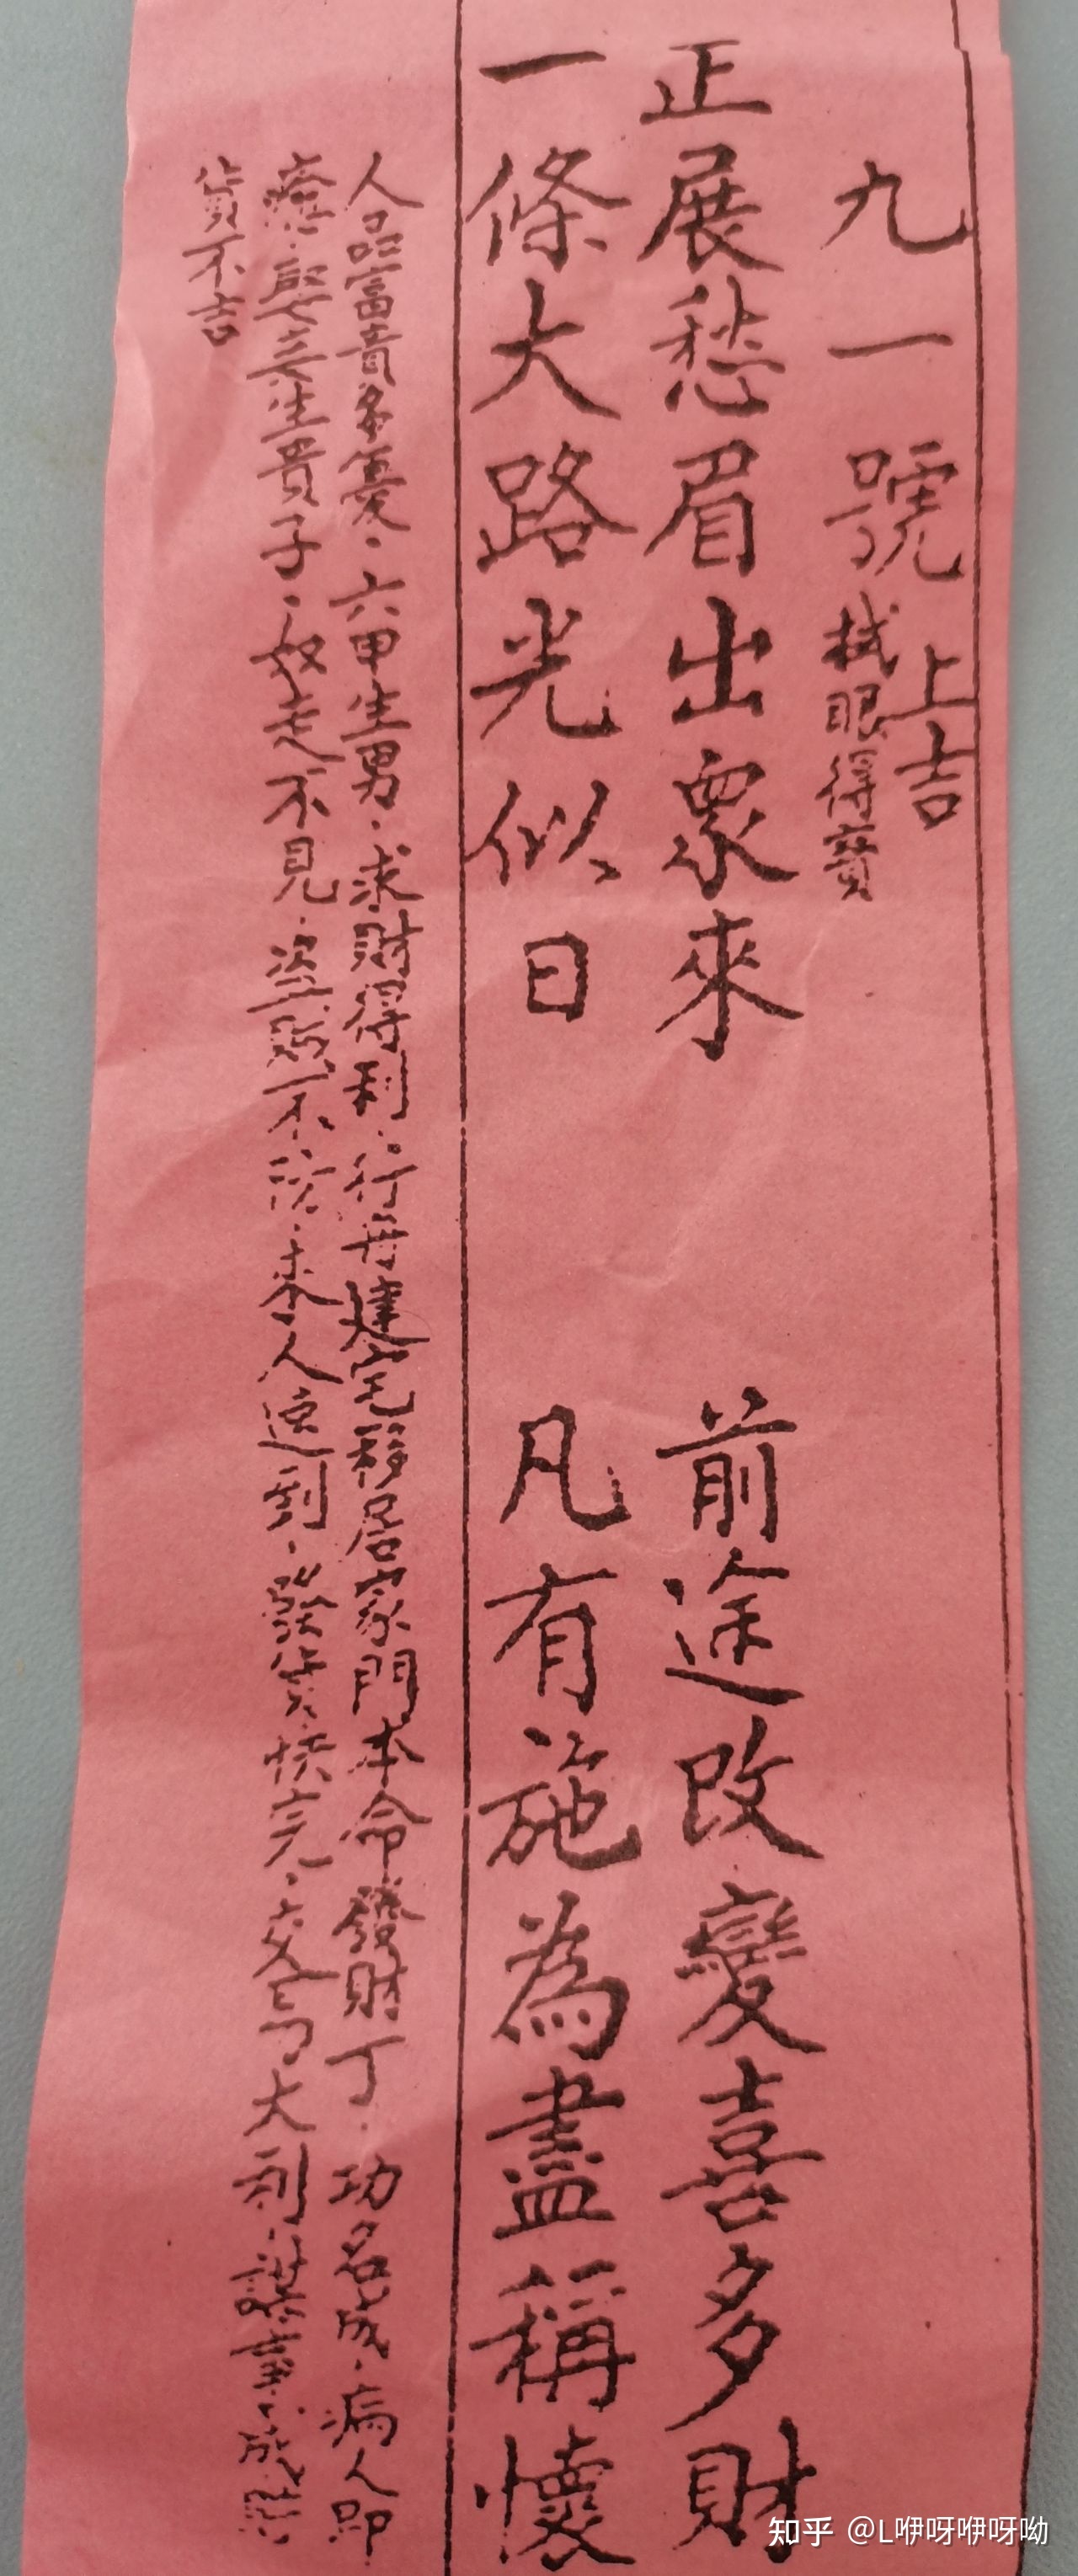 九一號 上吉
拭眼得寶
正展愁眉出眾來 前途改變喜多財
一條大路光似日 凡有施為盡稱懷
人品富貴多憂．六甲生男．求財得利．行舟建宅移居家門本命發財丁．功名成．病人即
痊．娶妻生貴子．奴走不見．盜賊不 ．來人速到．發貨快完．交易大利．謀事成
貨不吉
知乎 @L咿呀咿呀呦